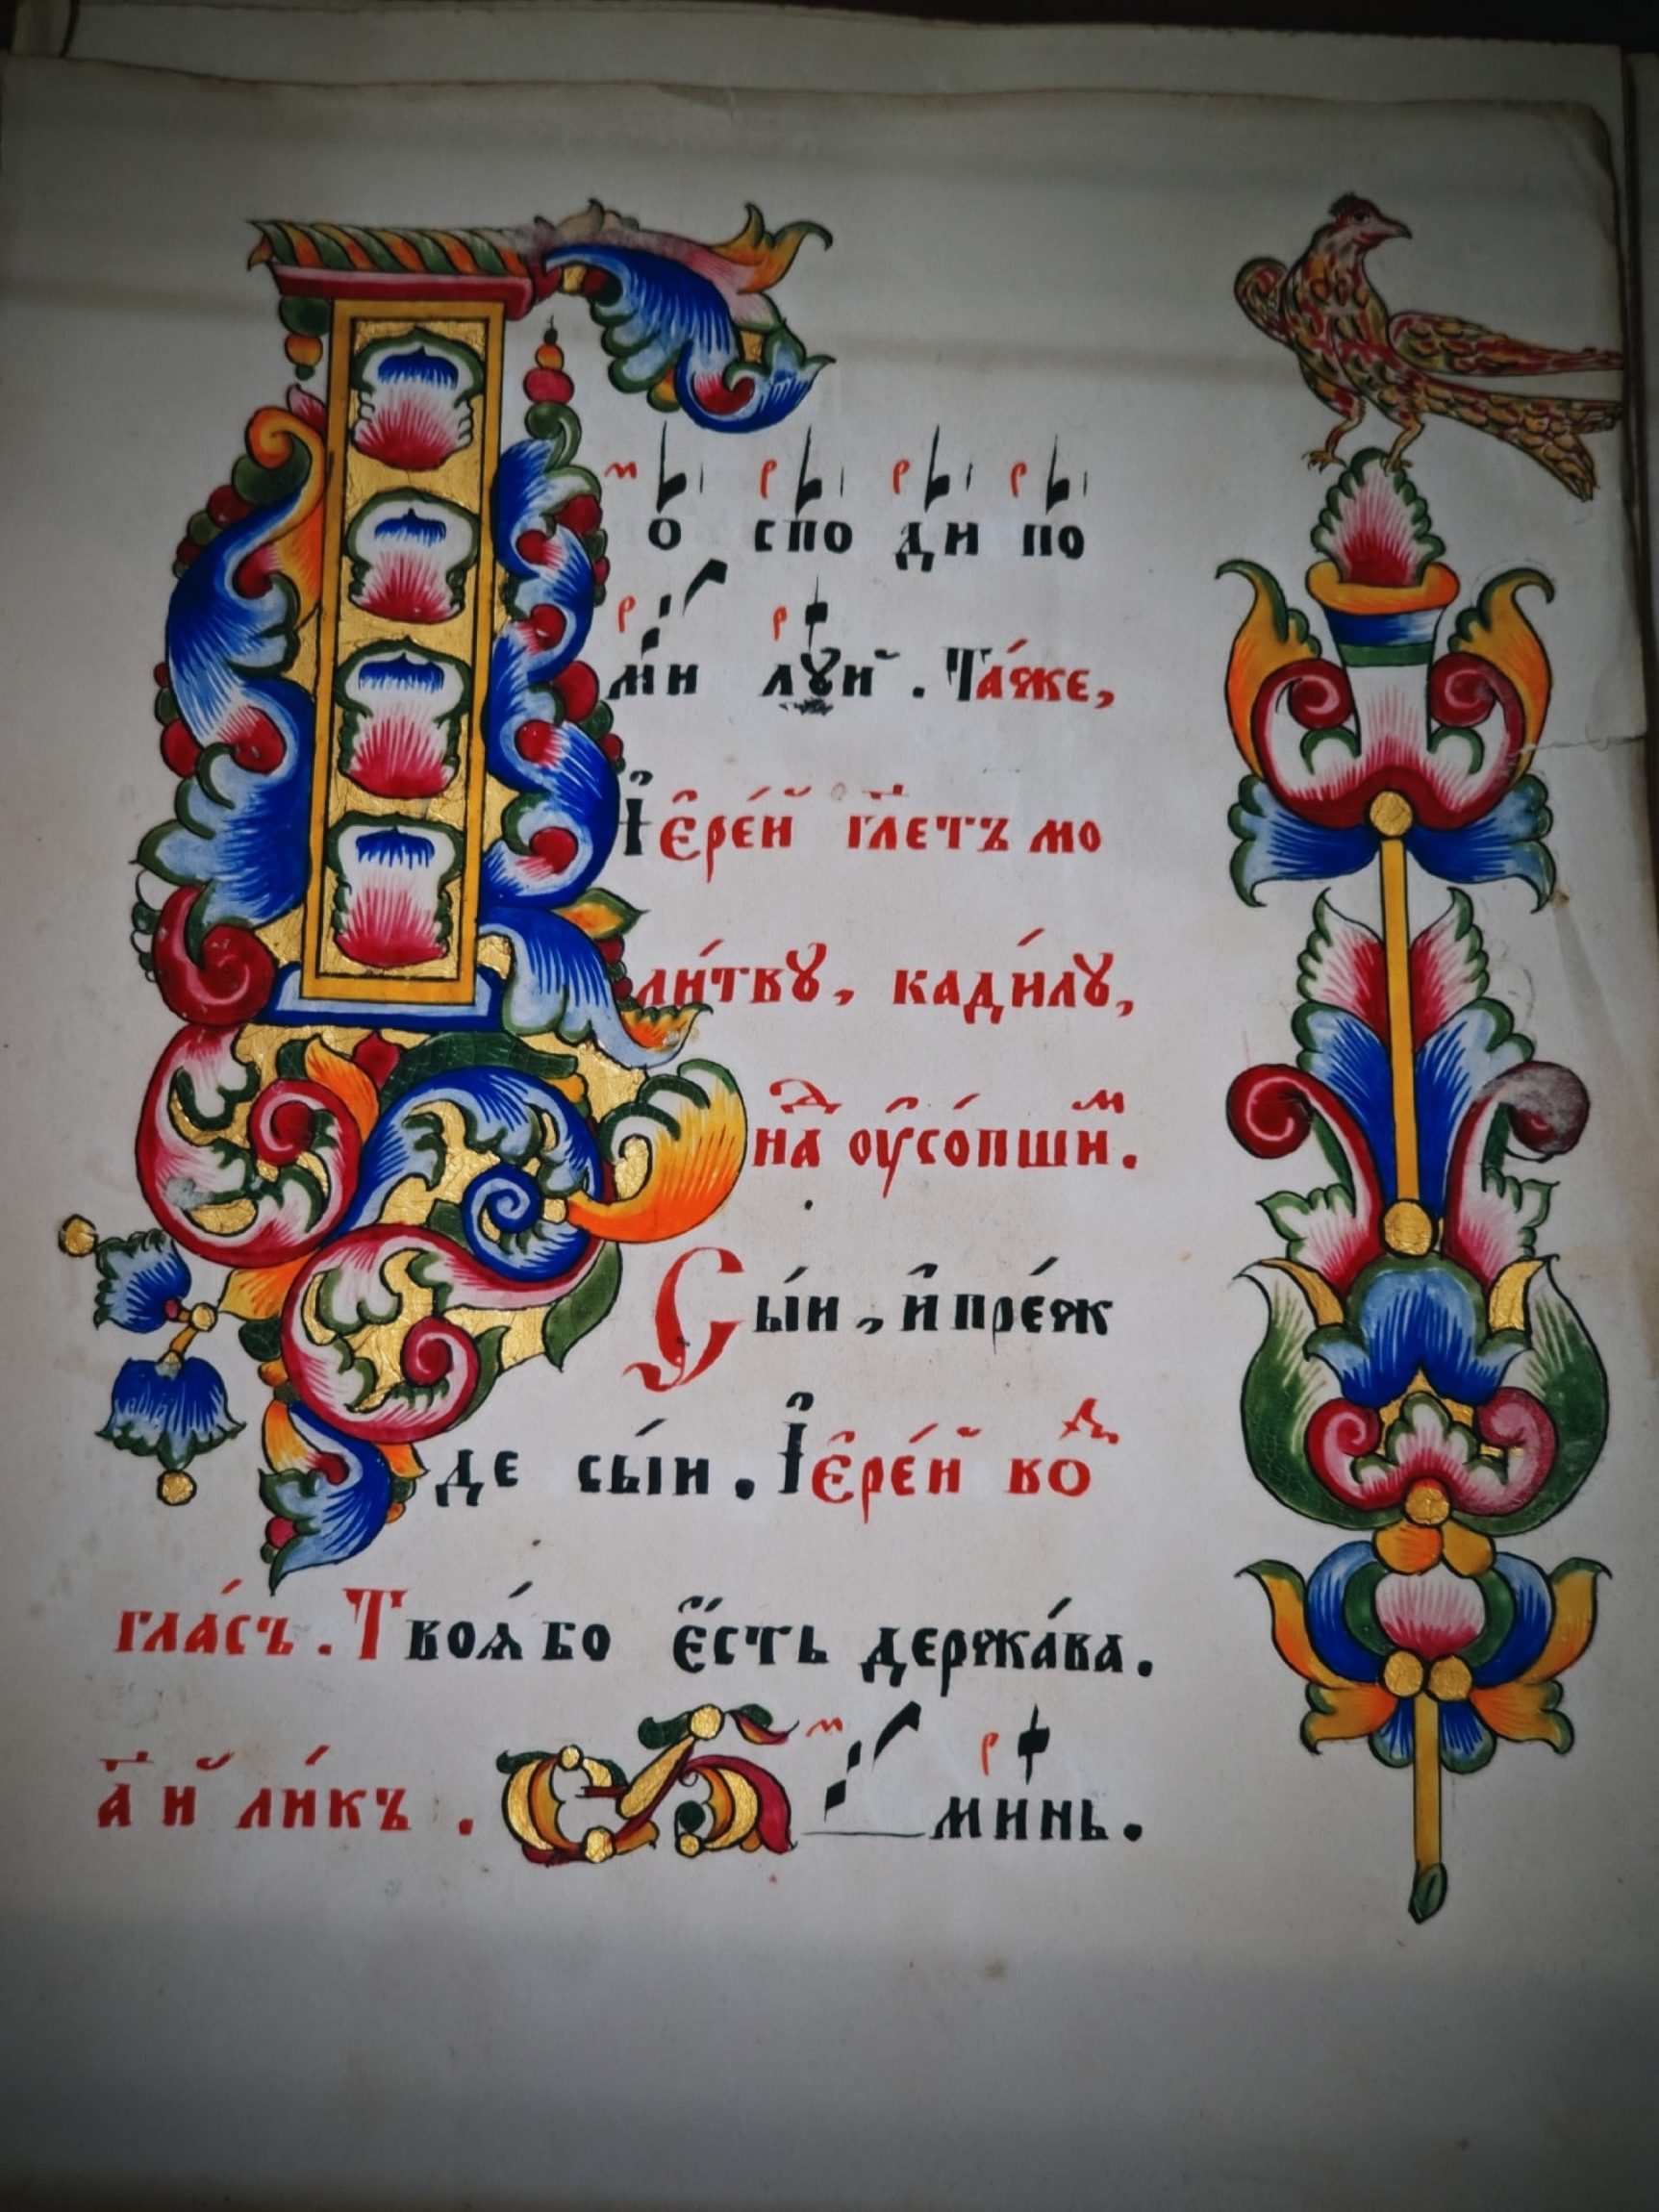 Го спо ди по
ми лꙋй . Та́же,
І҆ере́й гл҃етъ мо
ли́твꙋ, кади́лꙋ,
наⷣ оу҆со́пшиⷨ.
Сы́и, и҆ преж
де сы́и. І҆ере́й воⷥ
гла́съ. Твоѧ́ бо є҆́сть держа́ва.
а҃ й ли́къ . А минь.